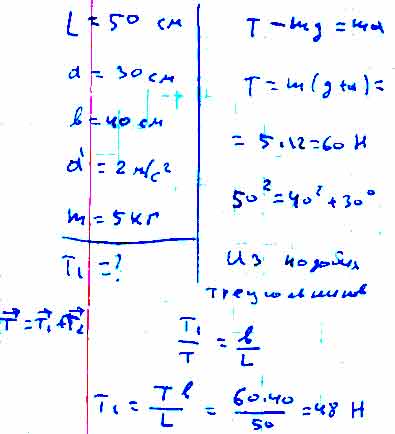 L = 50 см
d = 30 см
b = 40 см
a' = 2 м/с²
m = 5 кг
T₁ = ?
T⃗ = T⃗₁ + T⃗₂
T - mg = ma
T = m(g+a) =
= 5.12 = 60 H
50² = 40² + 30²
Из подобия
треугольников
T₁/T = b/L
T₁ = T b/L = 60.40/50 = 48 H